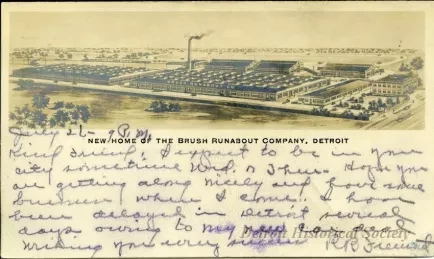 NEW HOME OF THE BRUSH RUNABOUT COMPANY, DETROIT
July 26 - 9 P.M.
Kind Friend, I expect to be in your
city sometime Wed. or Thur. Hope you
are getting along nicely and have some
business when I come. I have
been delayed in Detroit several
days owing to my new car
Detroit Historical Society
you very